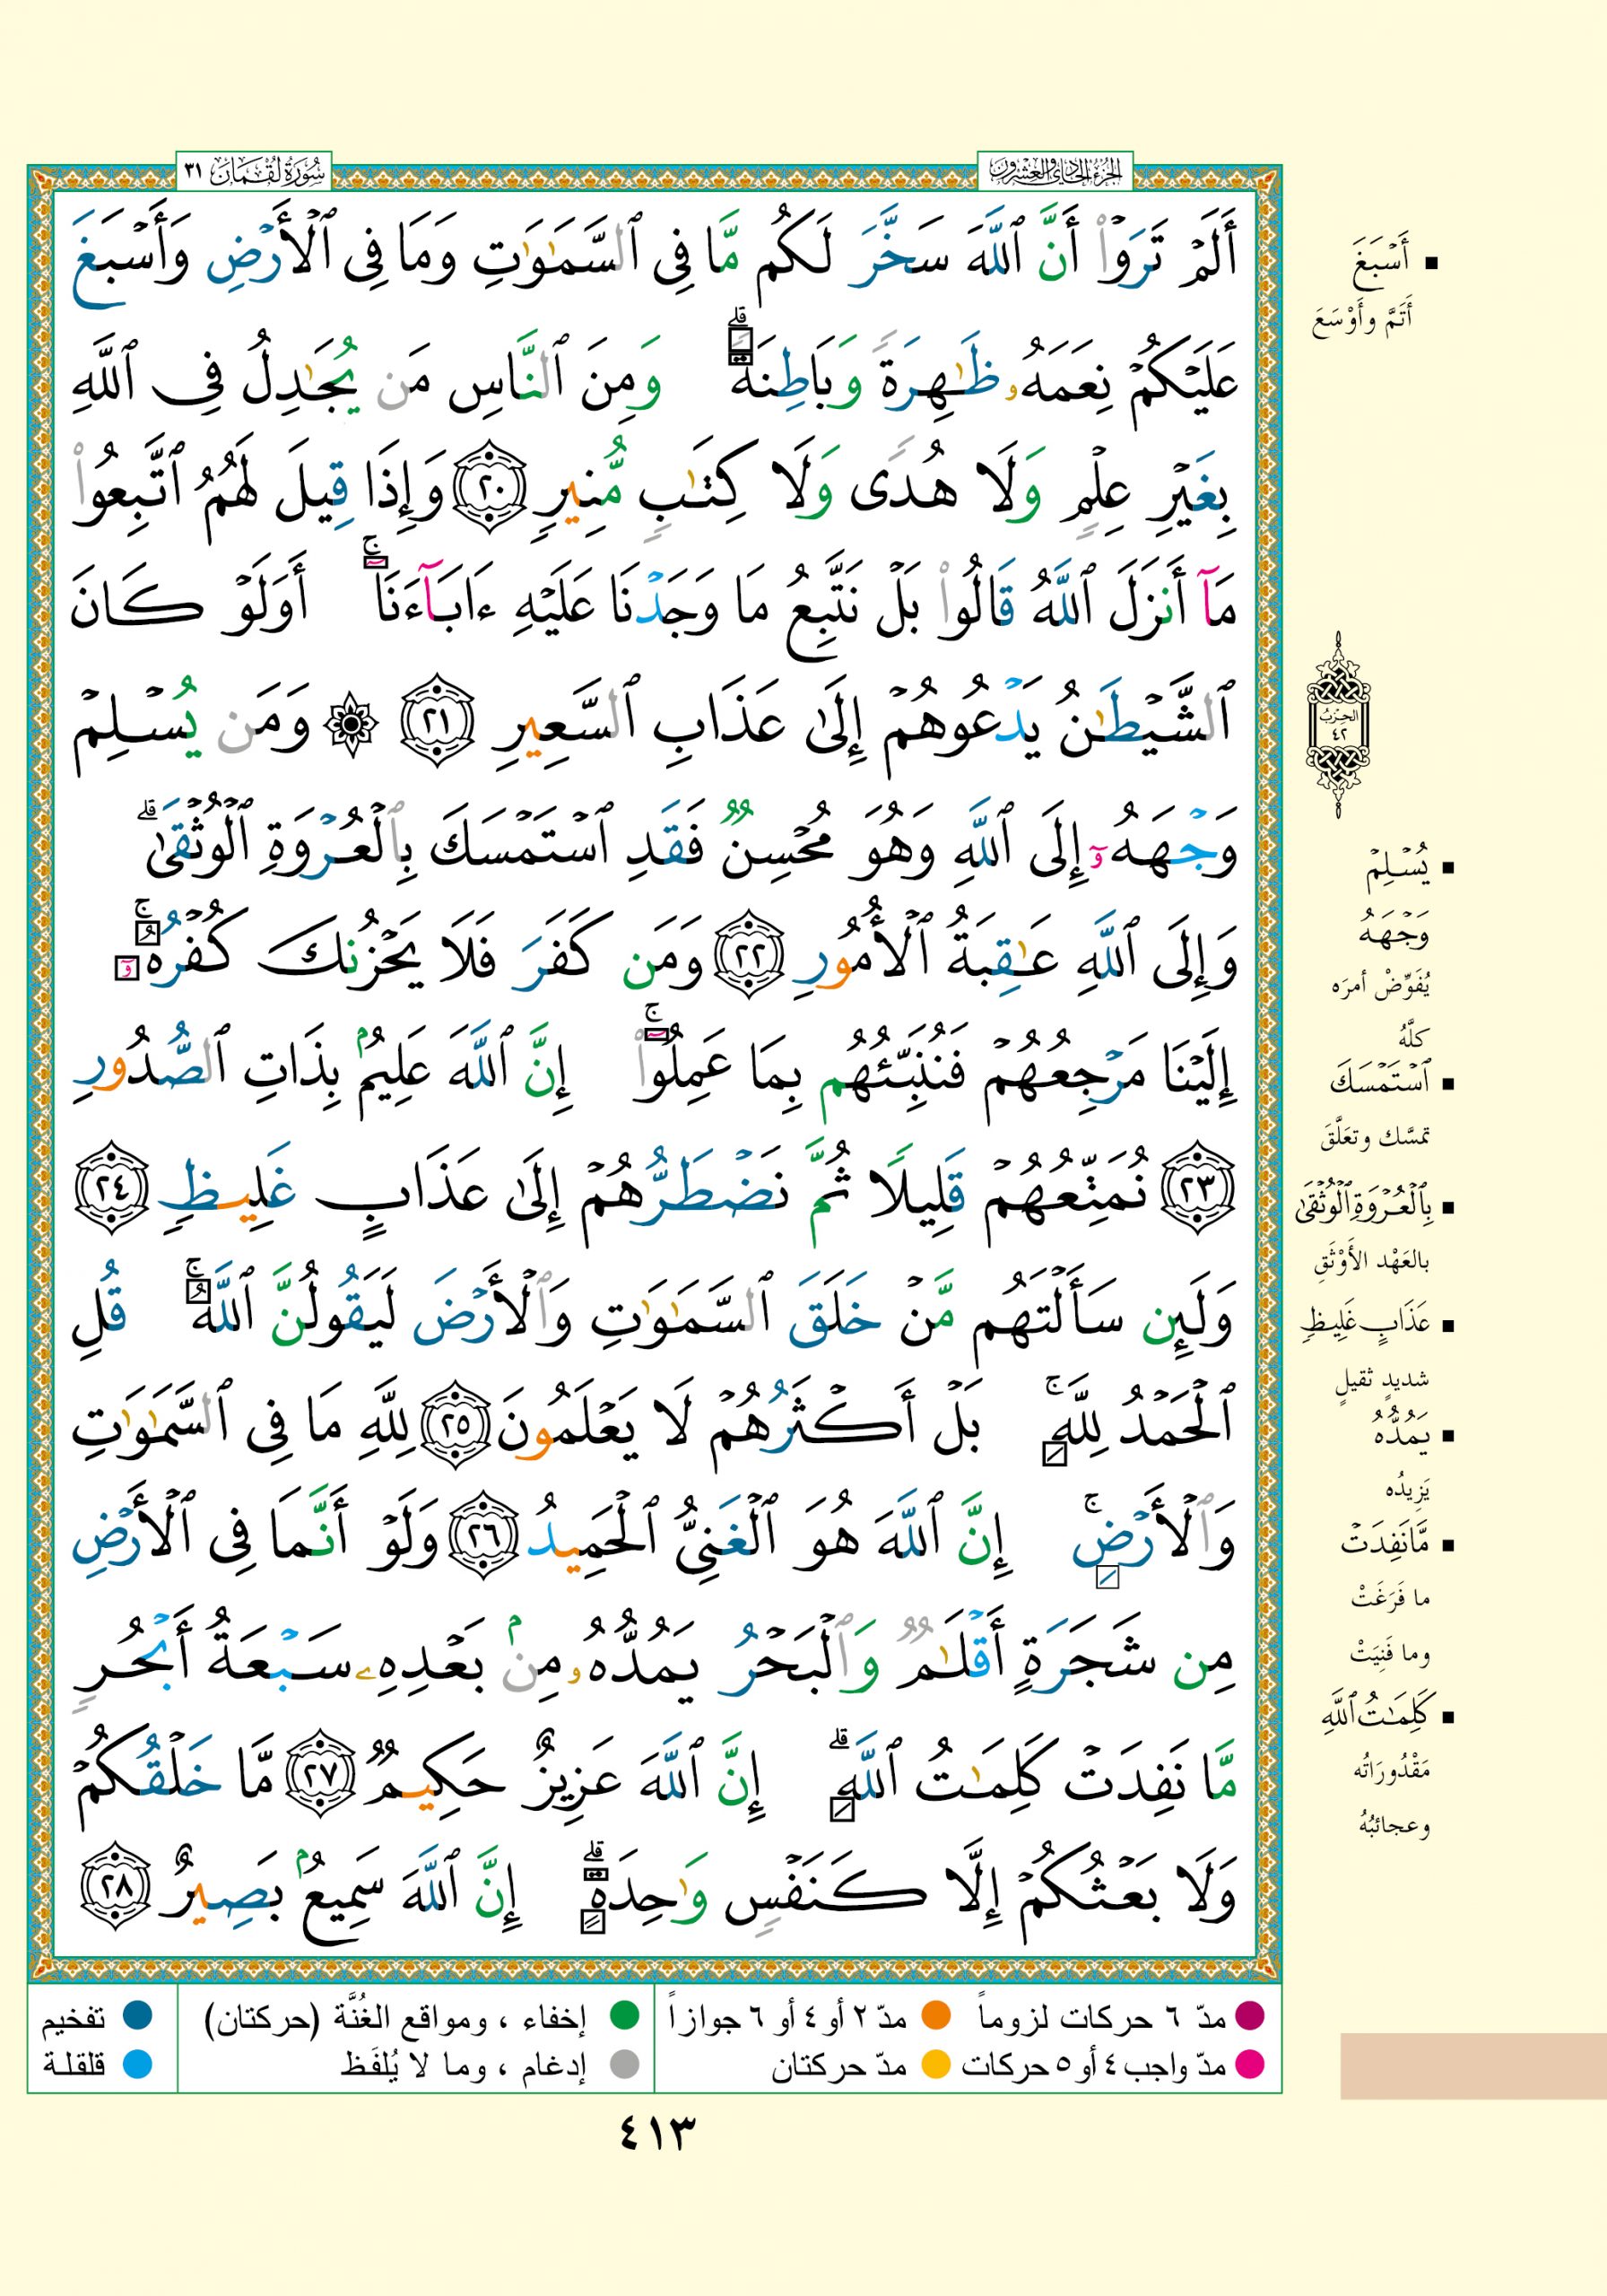 الجزء الحادي والعشرون
سورة لقمان ٣١
أَلَمْ تَرَوْا۟ أَنَّ ٱللَّهَ سَخَّرَ لَكُم مَّا فِى ٱلسَّمَـٰوَٰتِ وَمَا فِى ٱلْأَرْضِ وَأَسْبَغَ
عَلَيْكُمْ نِعَمَهُۥ ظَـٰهِرَةً وَبَاطِنَةً ۗ وَمِنَ ٱلنَّاسِ مَن يُجَـٰدِلُ فِى ٱللَّهِ
بِغَيْرِ عِلْمٍ وَلَا هُدًى وَلَا كِتَـٰبٍ مُّنِيرٍ ٢٠ وَإِذَا قِيلَ لَهُمُ ٱتَّبِعُوا۟
مَآ أَنزَلَ ٱللَّهُ قَالُوا۟ بَلْ نَتَّبِعُ مَا وَجَدْنَا عَلَيْهِ ءَابَآءَنَآ ۚ أَوَلَوْ كَانَ
ٱلشَّيْطَـٰنُ يَدْعُوهُمْ إِلَىٰ عَذَابِ ٱلسَّعِيرِ ٢١ ۞ وَمَن يُسْلِمْ
وَجْهَهُۥٓ إِلَى ٱللَّهِ وَهُوَ مُحْسِنٌ فَقَدِ ٱسْتَمْسَكَ بِٱلْعُرْوَةِ ٱلْوُثْقَىٰ ۗ
وَإِلَى ٱللَّهِ عَـٰقِبَةُ ٱلْأُمُورِ ٢٢ وَمَن كَفَرَ فَلَا يَحْزُنكَ كُفْرُهُۥٓ ۚ
إِلَيْنَا مَرْجِعُهُمْ فَنُنَبِّئُهُم بِمَا عَمِلُوٓا۟ ۚ إِنَّ ٱللَّهَ عَلِيمٌۢ بِذَاتِ ٱلصُّدُورِ
٢٣ نُمَتِّعُهُمْ قَلِيلًا ثُمَّ نَضْطَرُّهُمْ إِلَىٰ عَذَابٍ غَلِيظٍ ٢٤
وَلَئِن سَأَلْتَهُم مَّنْ خَلَقَ ٱلسَّمَـٰوَٰتِ وَٱلْأَرْضَ لَيَقُولُنَّ ٱللَّهُ ۚ قُلِ
ٱلْحَمْدُ لِلَّهِ ۚ بَلْ أَكْثَرُهُمْ لَا يَعْلَمُونَ ٢٥ لِلَّهِ مَا فِى ٱلسَّمَـٰوَٰتِ
وَٱلْأَرْضِ ۚ إِنَّ ٱللَّهَ هُوَ ٱلْغَنِىُّ ٱلْحَمِيدُ ٢٦ وَلَوْ أَنَّمَا فِى ٱلْأَرْضِ
مِن شَجَرَةٍ أَقْلَـٰمٌ وَٱلْبَحْرُ يَمُدُّهُۥ مِنۢ بَعْدِهِۦ سَبْعَةُ أَبْحُرٍ
مَّا نَفِدَتْ كَلِمَـٰتُ ٱللَّهِ ۗ إِنَّ ٱللَّهَ عَزِيزٌ حَكِيمٌ ٢٧ مَّا خَلْقُكُمْ
وَلَا بَعْثُكُمْ إِلَّا كَنَفْسٍ وَٰحِدَةٍ ۗ إِنَّ ٱللَّهَ سَمِيعٌۢ بَصِيرٌ ٢٨
أَسْبَغَ
أَتَمَّ وأَوْسَعَ
الحزب
٤٢
يُسْلِمْ
وَجْهَهُ
يُفَوِّضْ أمرَه
كلَّهُ
ٱسْتَمْسَكَ
تمسَّك وتعَلَّقَ
بِٱلْعُرْوَةِ ٱلْوُثْقَىٰ
بالعَهْد الأوْثَقِ
عَذَابٍ غَلِيظٍ
شديدٍ ثقيلٍ
يَمُدُّهُ
يَزِيدُه
مَّا نَفِدَتْ
ما فَرَغَتْ
وما فَنِيَتْ
كَلِمَـٰتُ ٱللَّهِ
مَقْدُورَاتُه
وعجائبُهُ
مدّ ٦ حركات لزوماً مدّ ٢ أو ٤ أو ٦ جوازاً إخفاء ، ومواقع الغُنَّة (حركتان) تفخيم
مدّ واجب ٤ أو ٥ حركات مدّ حركتان إدغام ، وما لا يُلفَظ قلقلة
٤١٣